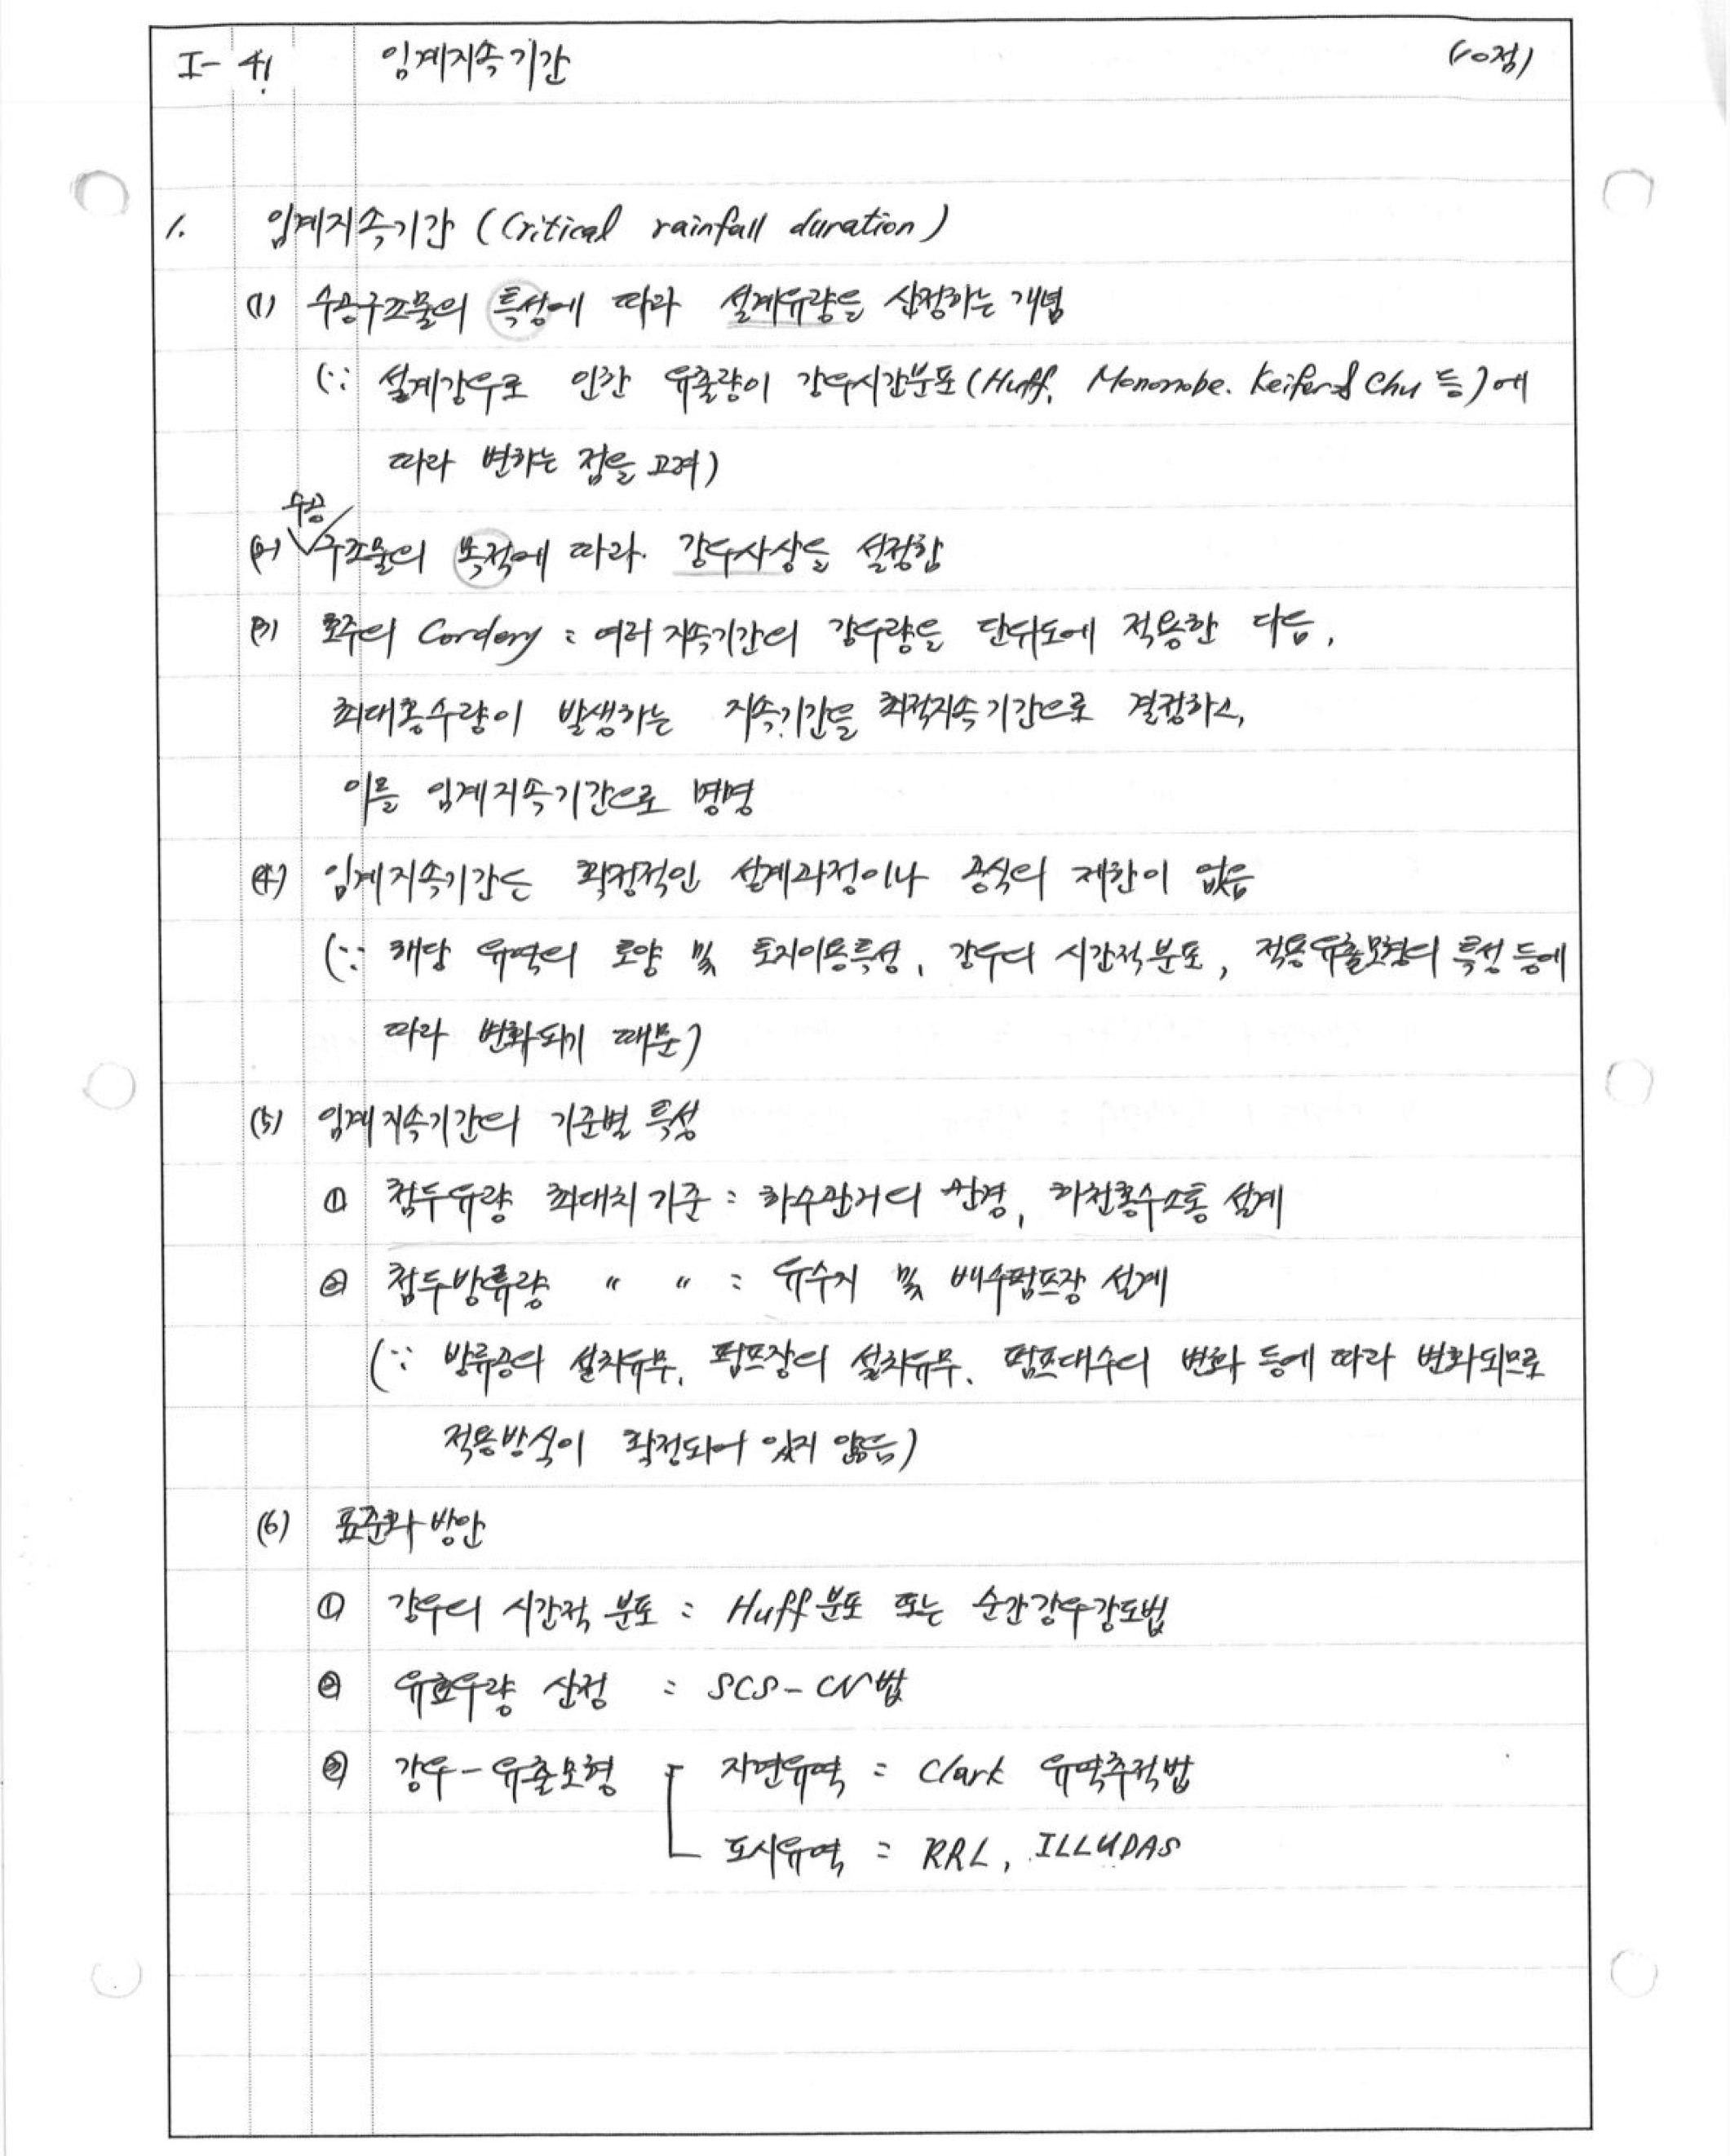 I- 41 임계지속기간 (10점)
1. 임계지속기간 (Critical rainfall duration)
(1) 수공구조물의 특성에 따라 설계유량을 산정하는 개념
(∵ 설계강우로 인한 유출량이 강우시간분포(Huff, Mononobe. Keifer & Chu 등)에
따라 변하는 점을 고려)
수공
(2) 구조물의 목적에 따라. 강우사상을 설정함
(3) 호주의 Cordery : 여러 지속기간의 강우량을 단위도에 적용한 다음,
최대홍수량이 발생하는 지속기간을 최적지속기간으로 결정하고,
이를 임계지속기간으로 명명
(4) 임계지속기간은 확정적인 설계과정이나 공식의 제한이 없음
(∵ 해당 유역의 토양 및 토지이용특성, 강우의 시간적분포, 적용유출모형의 특성 등에
따라 변화되기 때문)
(5) 임계지속기간의 기준별 특성
① 첨두유량 최대치 기준 : 하수관거의 관경, 하천홍수소통 설계
② 첨두방류량 〃 〃 : 유수지 및 배수펌프장 설계
(∵ 방류공의 설치유무, 펌프장의 설치유무, 펌프대수의 변화 등에 따라 변화되므로
적용방식이 확정되어 있지 않음)
(6) 표준화 방안
① 강우의 시간적 분포 : Huff 분포 또는 순간강우강도법
② 유효우량 산정 : SCS-CN법
③ 강우-유출모형 자연유역 : Clark 유역추적법
도시유역 : RRL, ILLUDAS